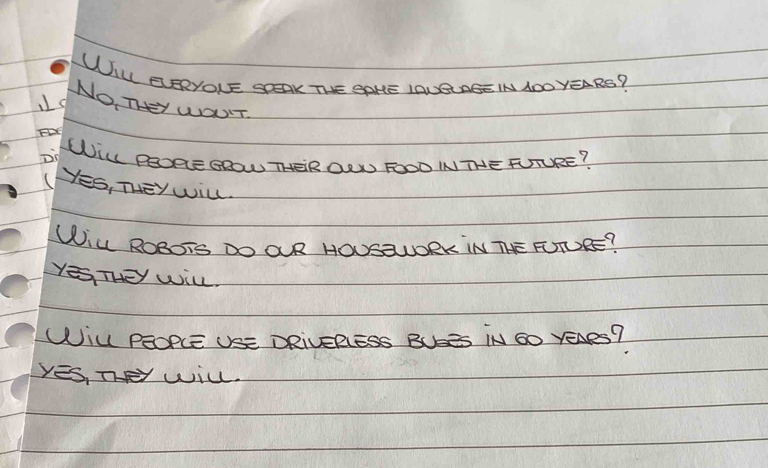 Will EVERYONE SPEAK THE SAME LANGUAGE IN 100 YEARS?
NO, THEY WON'T.
Will PEOPLE GROW THEIR OWN FOOD IN THE FUTURE?
YES, THEY Will.
Will ROBOTS DO OUR HOUSEWORK IN THE FUTURE?
YES, THEY Will.
Will PEOPLE USE DRIVERLESS BUSES IN 60 YEARS?
YES, THEY Will.